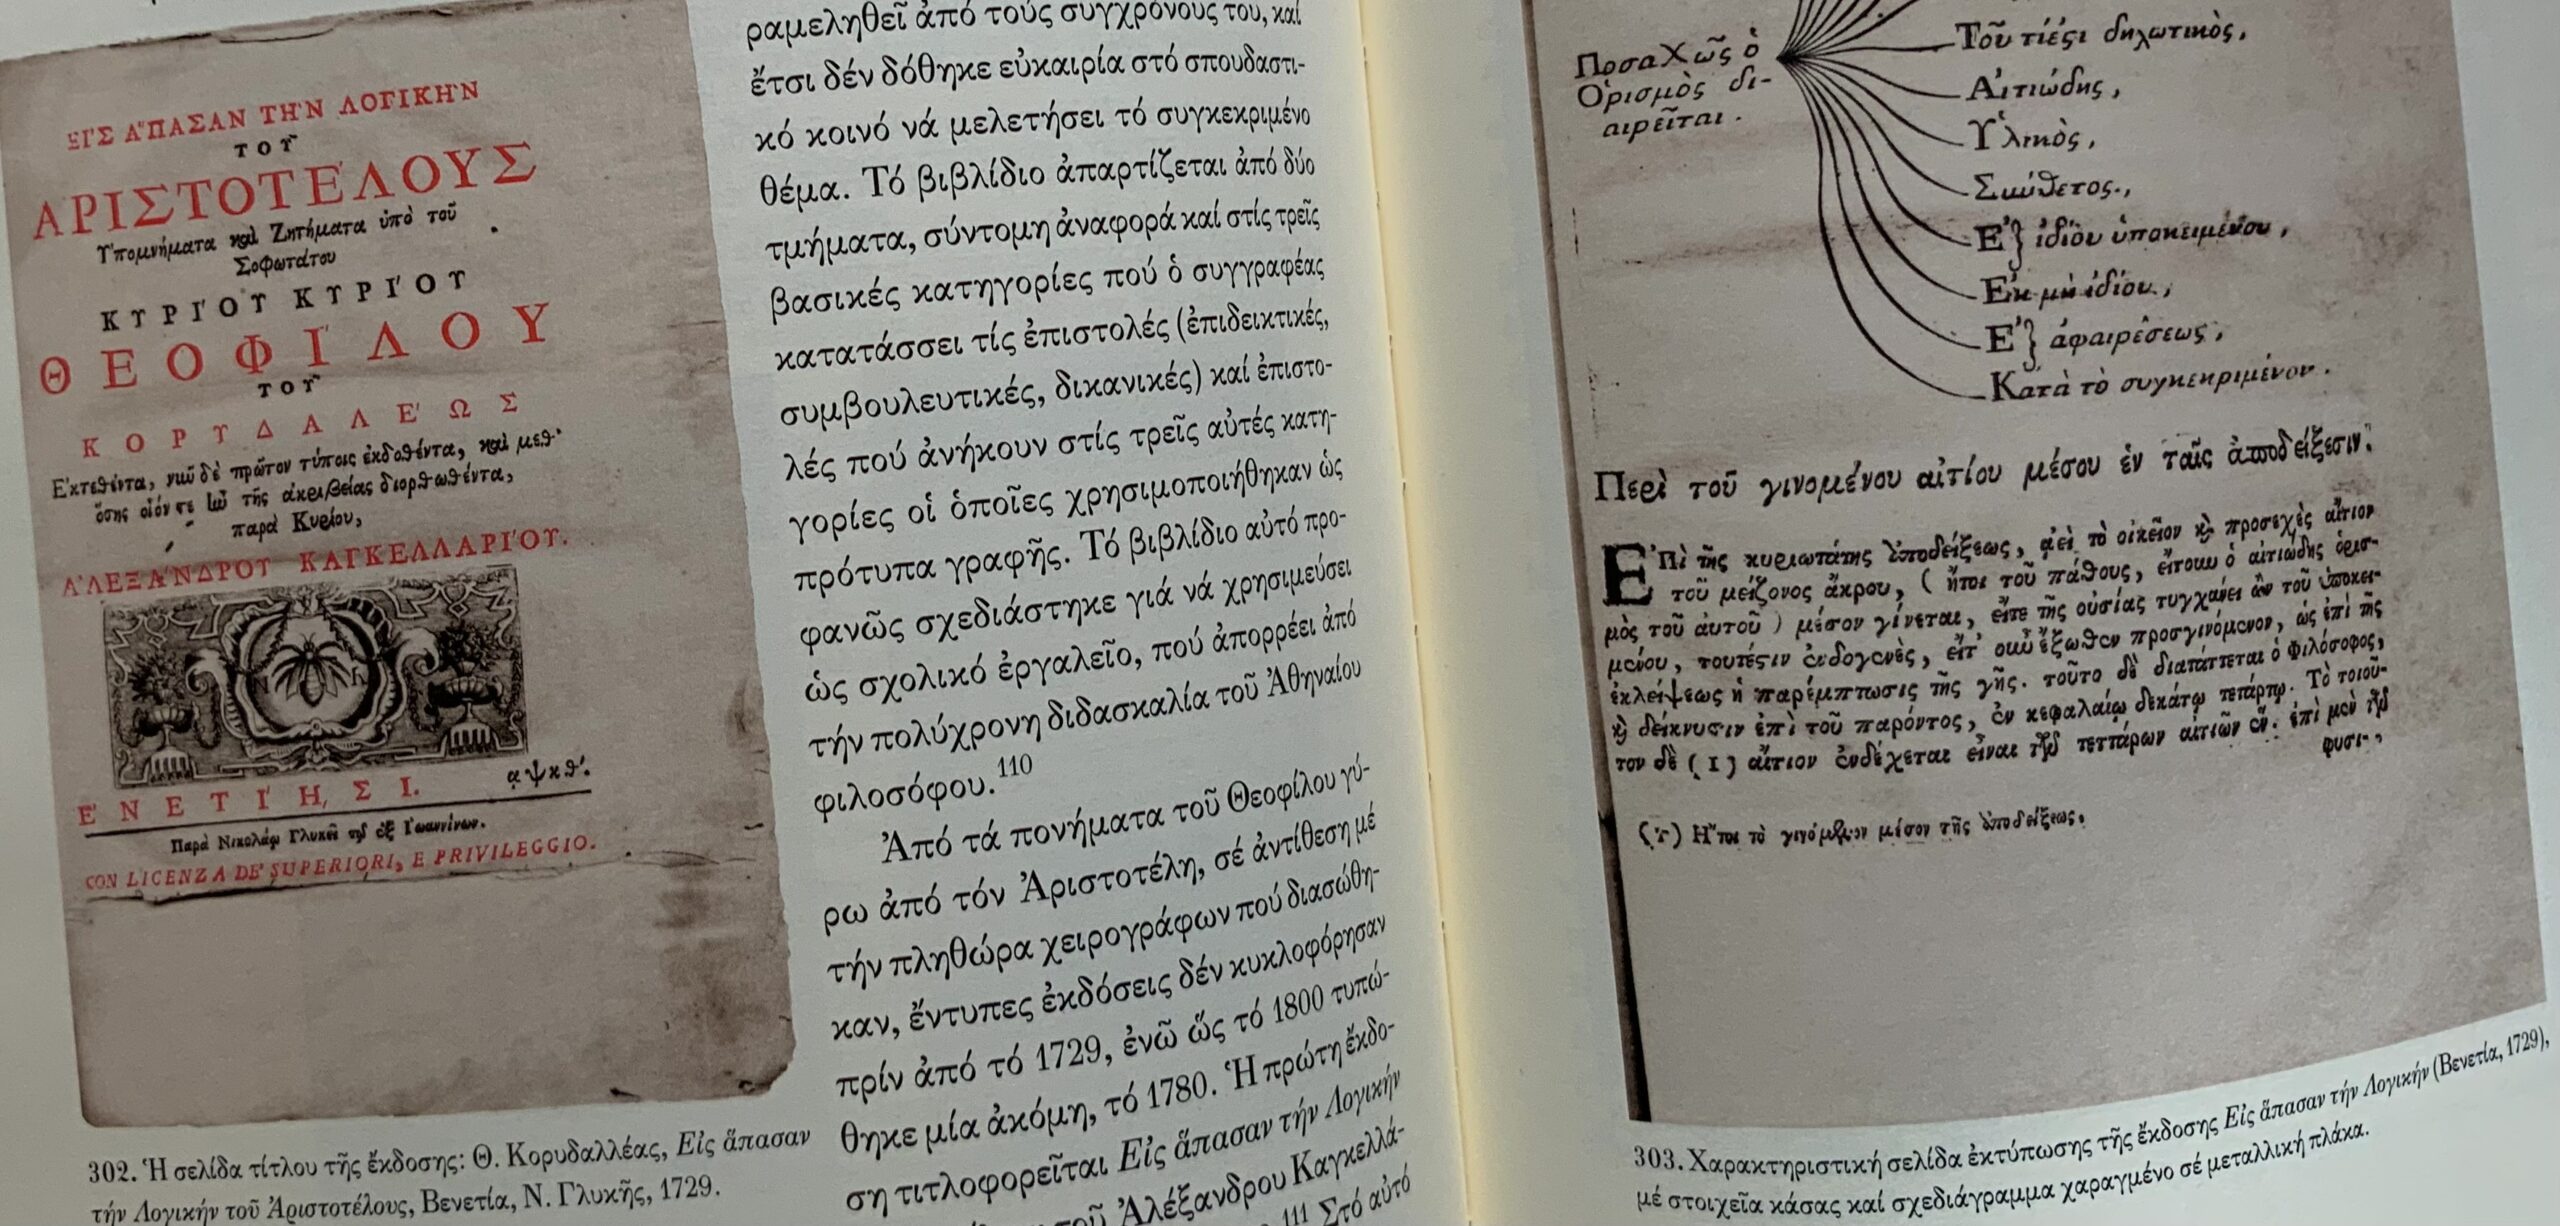 ΕΙ'Σ Α"ΠΑΣΑΝ ΤΗ'Ν ΛΟΓΙΚΗ'Ν
ΤΟΥ͂
ΑΡΙΣΤΟΤΕ'ΛΟΥΣ
Ὑπομνήματα καὶ Ζητήματα ὑπὸ τοῦ
Σοφωτάτου
ΚΥΡΙ'ΟΥ ΚΥΡΙ'ΟΥ
ΘΕΟΦΙ'ΛΟΥ
ΤΟΥ͂
ΚΟΡΥΔΑΛΕ'ΩΣ
Ἐκτεθέντα, νῦν δὲ πρῶτον τύποις ἐκδοθέντα, καὶ μεθ'
ὅσης οἷόν τε ἦν τῆς ἀκριβείας διορθωθέντα,
παρὰ Κυρίου,
Α'ΛΕΞΑ'ΝΔΡΟΥ ΚΑΓΚΕΛΛΑΡΙ'ΟΥ.
Ε'ΝΕΤΙ'ΗΣΙ. αψκθ'.
Παρὰ Νικολάῳ Γλυκεῖ τῷ ἐξ Ἰωαννίνων.
CON LICENZA DE' SUPERIORI, E PRIVILEGGIO.
302. Ἡ σελίδα τίτλου τῆς ἔκδοσης: Θ. Κορυδαλλέας, Εἰς ἅπασαν
τήν Λογικήν τοῦ Ἀριστοτέλους, Βενετία, Ν. Γλυκῆς, 1729.
ραμεληθεῖ ἀπό τούς συγχρόνους του, καί
ἔτσι δέν δόθηκε εὐκαιρία στό σπουδαστι-
κό κοινό νά μελετήσει τό συγκεκριμένο
θέμα. Τό βιβλίδιο ἀπαρτίζεται ἀπό δύο
τμήματα, σύντομη ἀναφορά καί στίς τρεῖς
βασικές κατηγορίες πού ὁ συγγραφέας
κατατάσσει τίς ἐπιστολές (ἐπιδεικτικές,
συμβουλευτικές, δικανικές) καί ἐπιστο-
λές πού ἀνήκουν στίς τρεῖς αὐτές κατη-
γορίες οἱ ὁποῖες χρησιμοποιήθηκαν ὡς
πρότυπα γραφῆς. Τό βιβλίδιο αὐτό προ-
φανῶς σχεδιάστηκε γιά νά χρησιμεύσει
ὡς σχολικό ἐργαλεῖο, πού ἀπορρέει ἀπό
τήν πολύχρονη διδασκαλία τοῦ Ἀθηναίου
φιλοσόφου.110
Ἀπό τά πονήματα τοῦ Θεοφίλου γύ-
ρω ἀπό τόν Ἀριστοτέλη, σέ ἀντίθεση μέ
τήν πληθώρα χειρογράφων πού διασώθη-
καν, ἔντυπες ἐκδόσεις δέν κυκλοφόρησαν
πρίν ἀπό τό 1729, ἐνῶ ὥς τό 1800 τυπώ-
θηκε μία ἀκόμη, τό 1780. Ἡ πρώτη ἔκδο-
ση τιτλοφορεῖται Εἰς ἅπασαν τήν Λογικήν
τοῦ Ἀλέξανδρου Καγκελλά-
111 Στό αὐτό
Ποσαχῶς ὁ
Ὁρισμὸς δι-
αιρεῖται.
Τοῦ τί ἐστι δηλωτικὸς,
Αἰτιώδης,
Ὑλικὸς,
Σύνθετος.,
Ἐξ ἰδίου ὑποκειμένου,
Ἐκ μὴ ἰδίου,
Ἐξ ἀφαιρέσεως,
Κατὰ τὸ συγκεκριμένον.
Περὶ τοῦ γινομένου αἰτίου μέσου ἐν ταῖς ἀποδείξεσιν.
Ἐπὶ τῆς κυριωτάτης ἀποδείξεως, ἀεὶ τὸ οἰκεῖον καὶ προσεχὲς αἴτιον
τοῦ μείζονος ἄκρου, (ἤτοι τοῦ πάθους, εἴτουν ὁ αἰτιώδης ὁρισ-
μὸς τοῦ αὐτοῦ) μέσον γίνεται, εἴτε τῆς οὐσίας τυγχάνει ὂν τοῦ ὑποκει-
μένου, τουτέστιν ἐνδογενὲς, εἴτ' οὖν ἔξωθεν προσγινόμενον, ὡς ἐπὶ τῆς
ἐκλείψεως ἡ παρέμπτωσις τῆς γῆς. τοῦτο δὲ διατάττεται ὁ Φιλόσοφος,
καὶ δείκνυσιν ἐπὶ τοῦ παρόντος, ἐν κεφαλαίῳ δεκάτῳ τετάρτῳ. Τὸ τοιοῦ-
τον δὲ (1) αἴτιον ἐνδέχεται εἶναι τῶν τεττάρων αἰτιῶν ἕν. ἐπὶ μὲν τῶν
φυσι-
(1) Ἤτοι τὸ γινόμενον μέσον τῆς ἀποδείξεως.
303. Χαρακτηριστική σελίδα ἐκτύπωσης τῆς ἔκδοσης Εἰς ἅπασαν τήν Λογικήν (Βενετία, 1729),
μέ στοιχεῖα κάσας καί σχεδιάγραμμα χαραγμένο σέ μεταλλική πλάκα.